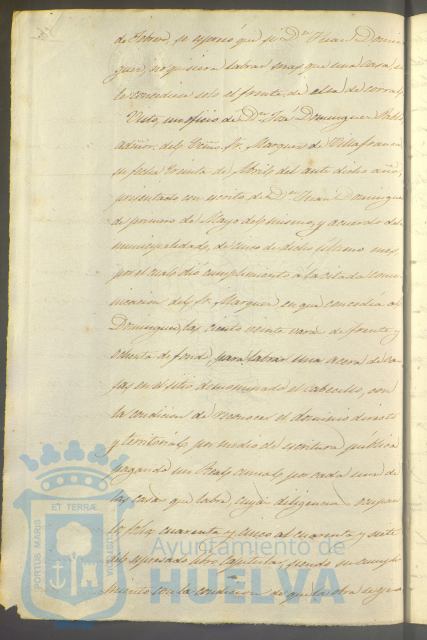 de Febrero, se espresó que si Dn. Juan Domin
guez, no quisiera labrar mas que una casa, se
le concediese solo el frente de ella de corral
Visto, un oficio de Dn. José Dominguez
admor. del Escmo. Sr. Marques de Villafranca
su fecha treinta de Abril del ante dicho año,
presentado con escrito de Dn. Juan Domingue
de primero de Mayo del mismo, y acuerdo de la
municipalidad, de cinco de dicho último mes,
por el cual dió cumplimiento á la citada comu
nicacion del Sr. Marques, en que concedia al
Dominguez, las ciento veinte varas de frente y
ochenta de fondo, para labrar una acera de ca
sas en el sitio denominado el cabecillo, con
la condicion de reconocer el dominio directo
y territorial, por medio de escritura pública
pagando un Real anual por cada una de
las casas que labre, cuyas diligencias ocupan
los folios cuarenta y cinco al cuarenta y siete
del espresado libro Capitular, siendo su cumpli
miento con la condicion de que la obra
PORTUS MARIS
ET TERRÆ
CUSTODIA
Ayuntamiento de
HUELVA